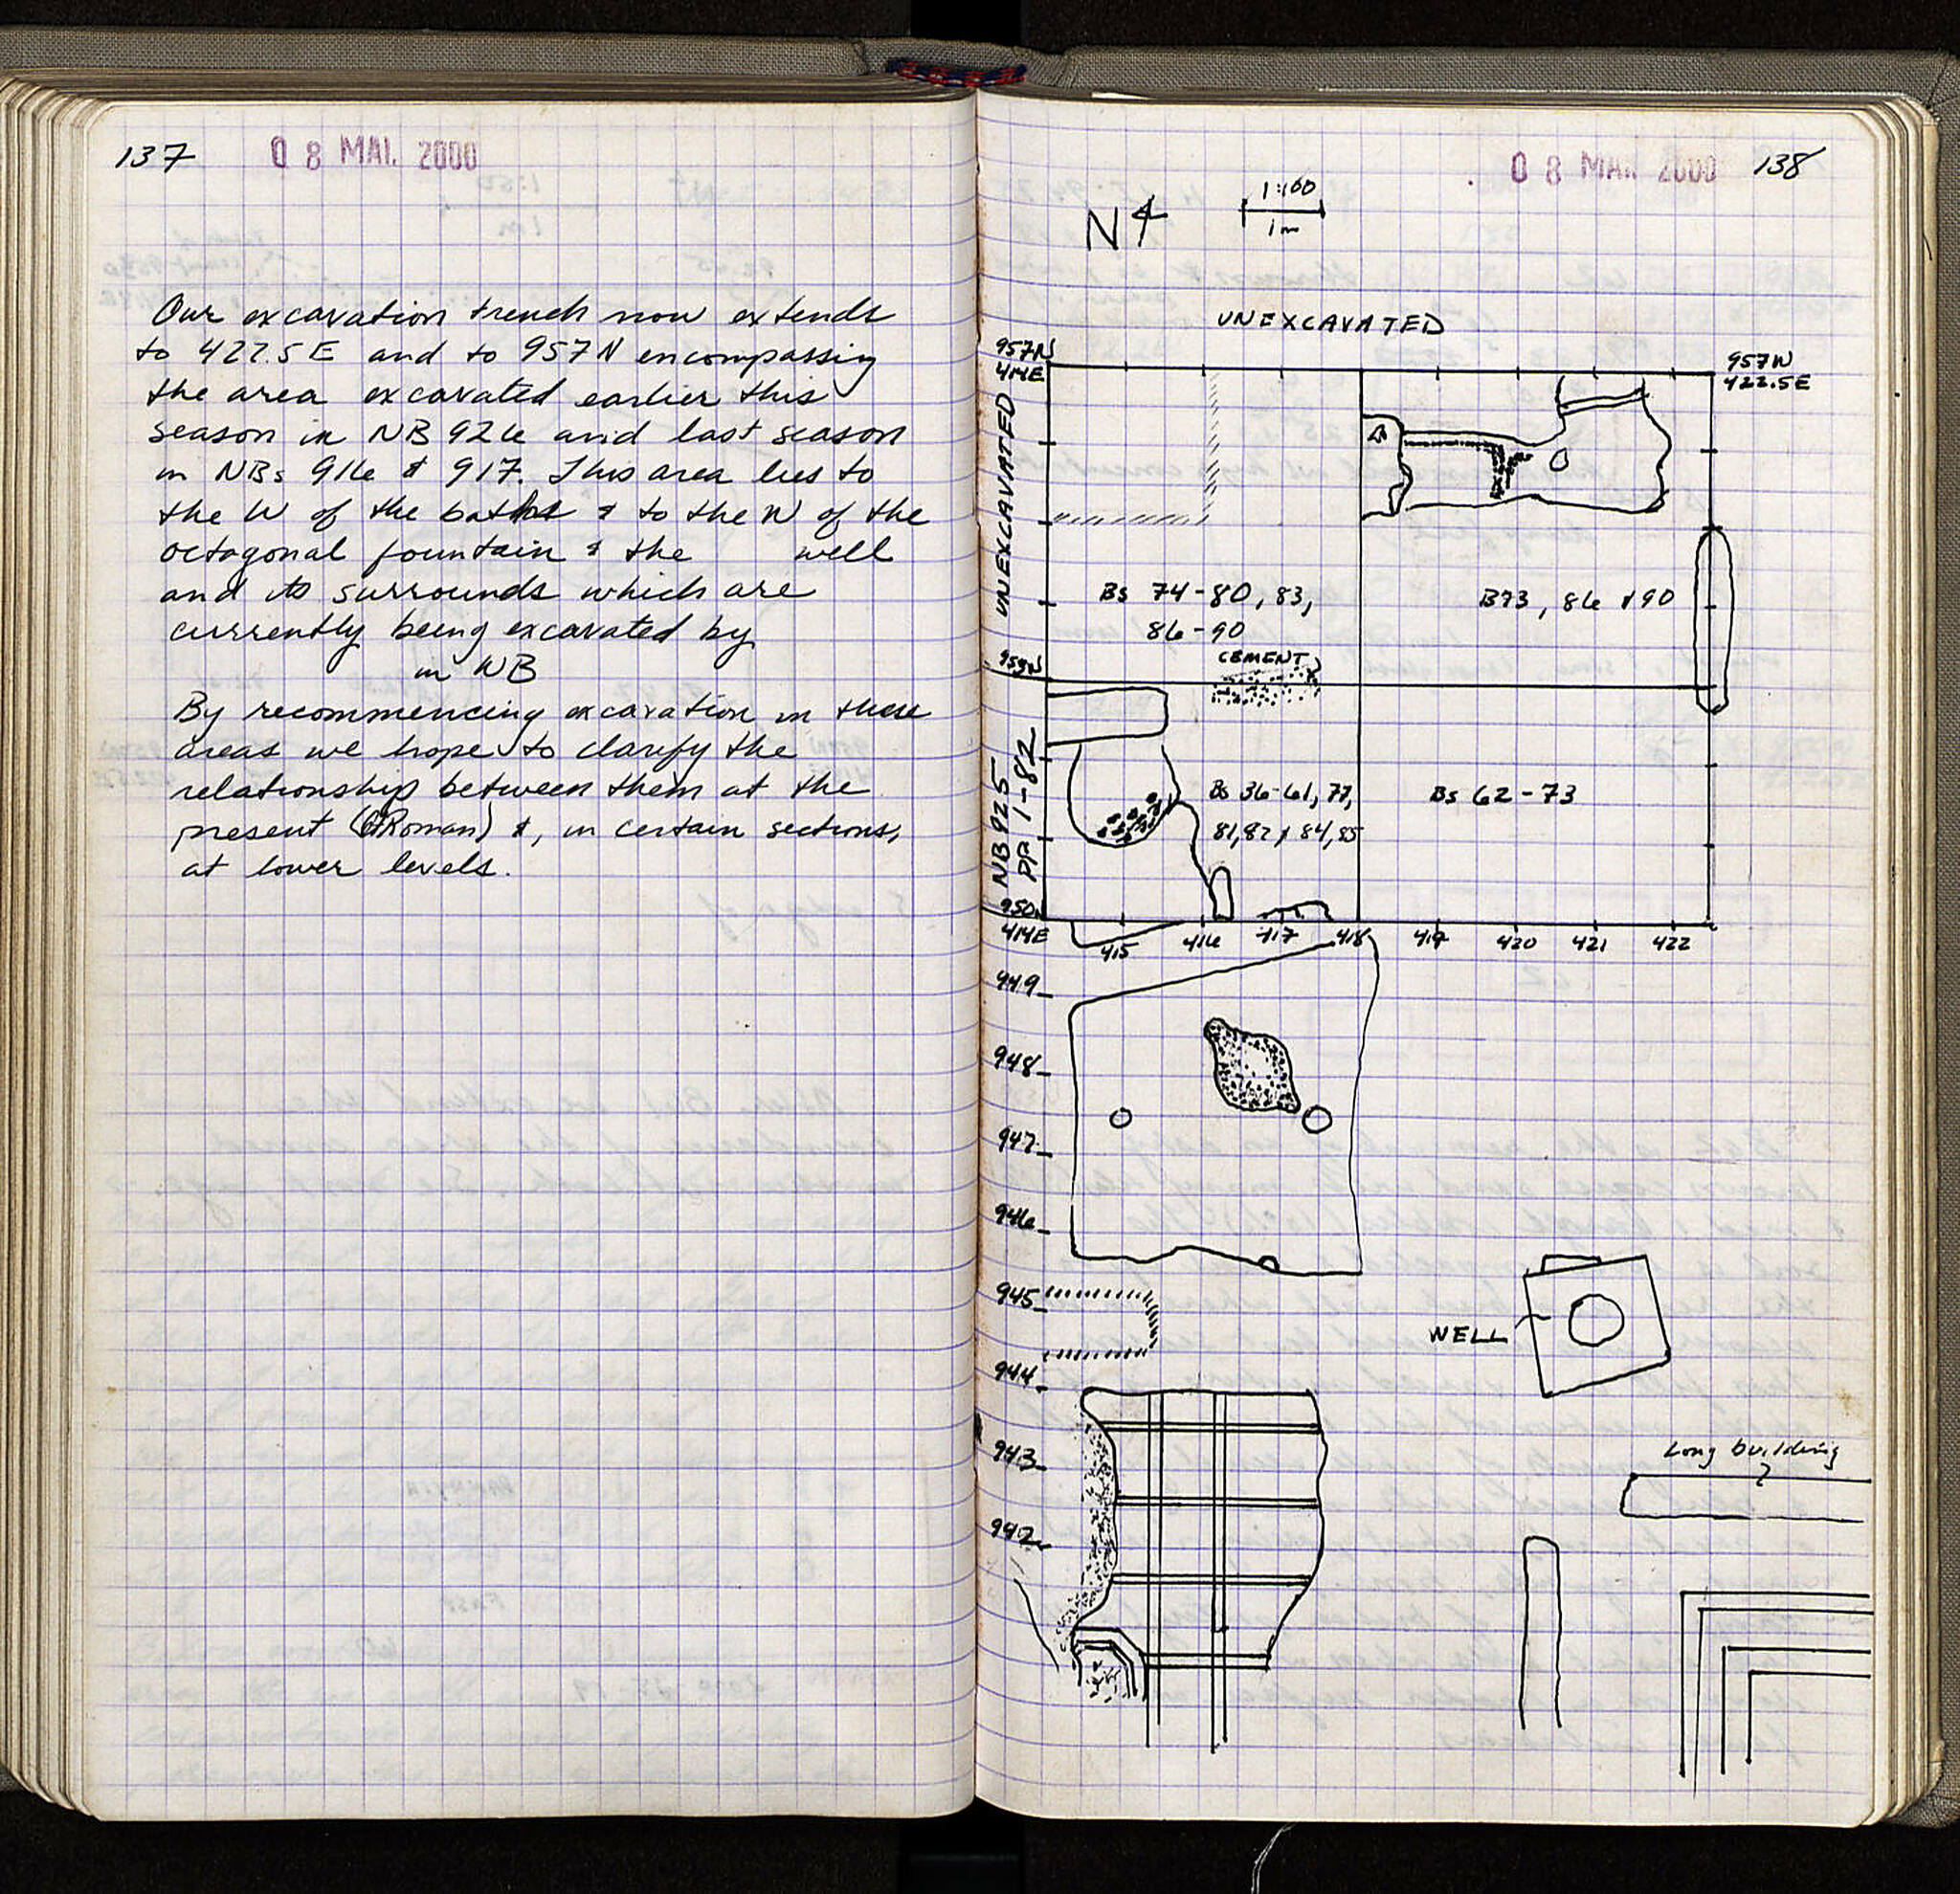 137
08 MAI. 2000
Our excavation trench now extends
to 422.5 E and to 957 N encompassing
the area excavated earlier this
season in NB 926 and last season
in NBs 916 & 917. This area lies to
the W of the baths & to the N of the
octagonal fountain & the well
and its surrounds which are
currently being excavated by
in NB
By recommencing excavation in these
areas we hope to clarify the
relationship between them at the
present (Roman) &, in certain sections,
at lower levels.
08 MAI. 2000
138
N
1:100
1m
UNEXCAVATED
957N
414E
957N
422.5E
UNEXCAVATED
Bs 74-80, 83,
86-90
B73, 86 & 90
CEMENT
953N
NB 925
PP 1-82
Bs 36-61, 77,
81, 82 & 84, 85
Bs 62-73
950N
414E
415
416
417
418
419
420
421
422
949
948
947
946
945
WELL
944
943
Long building
942